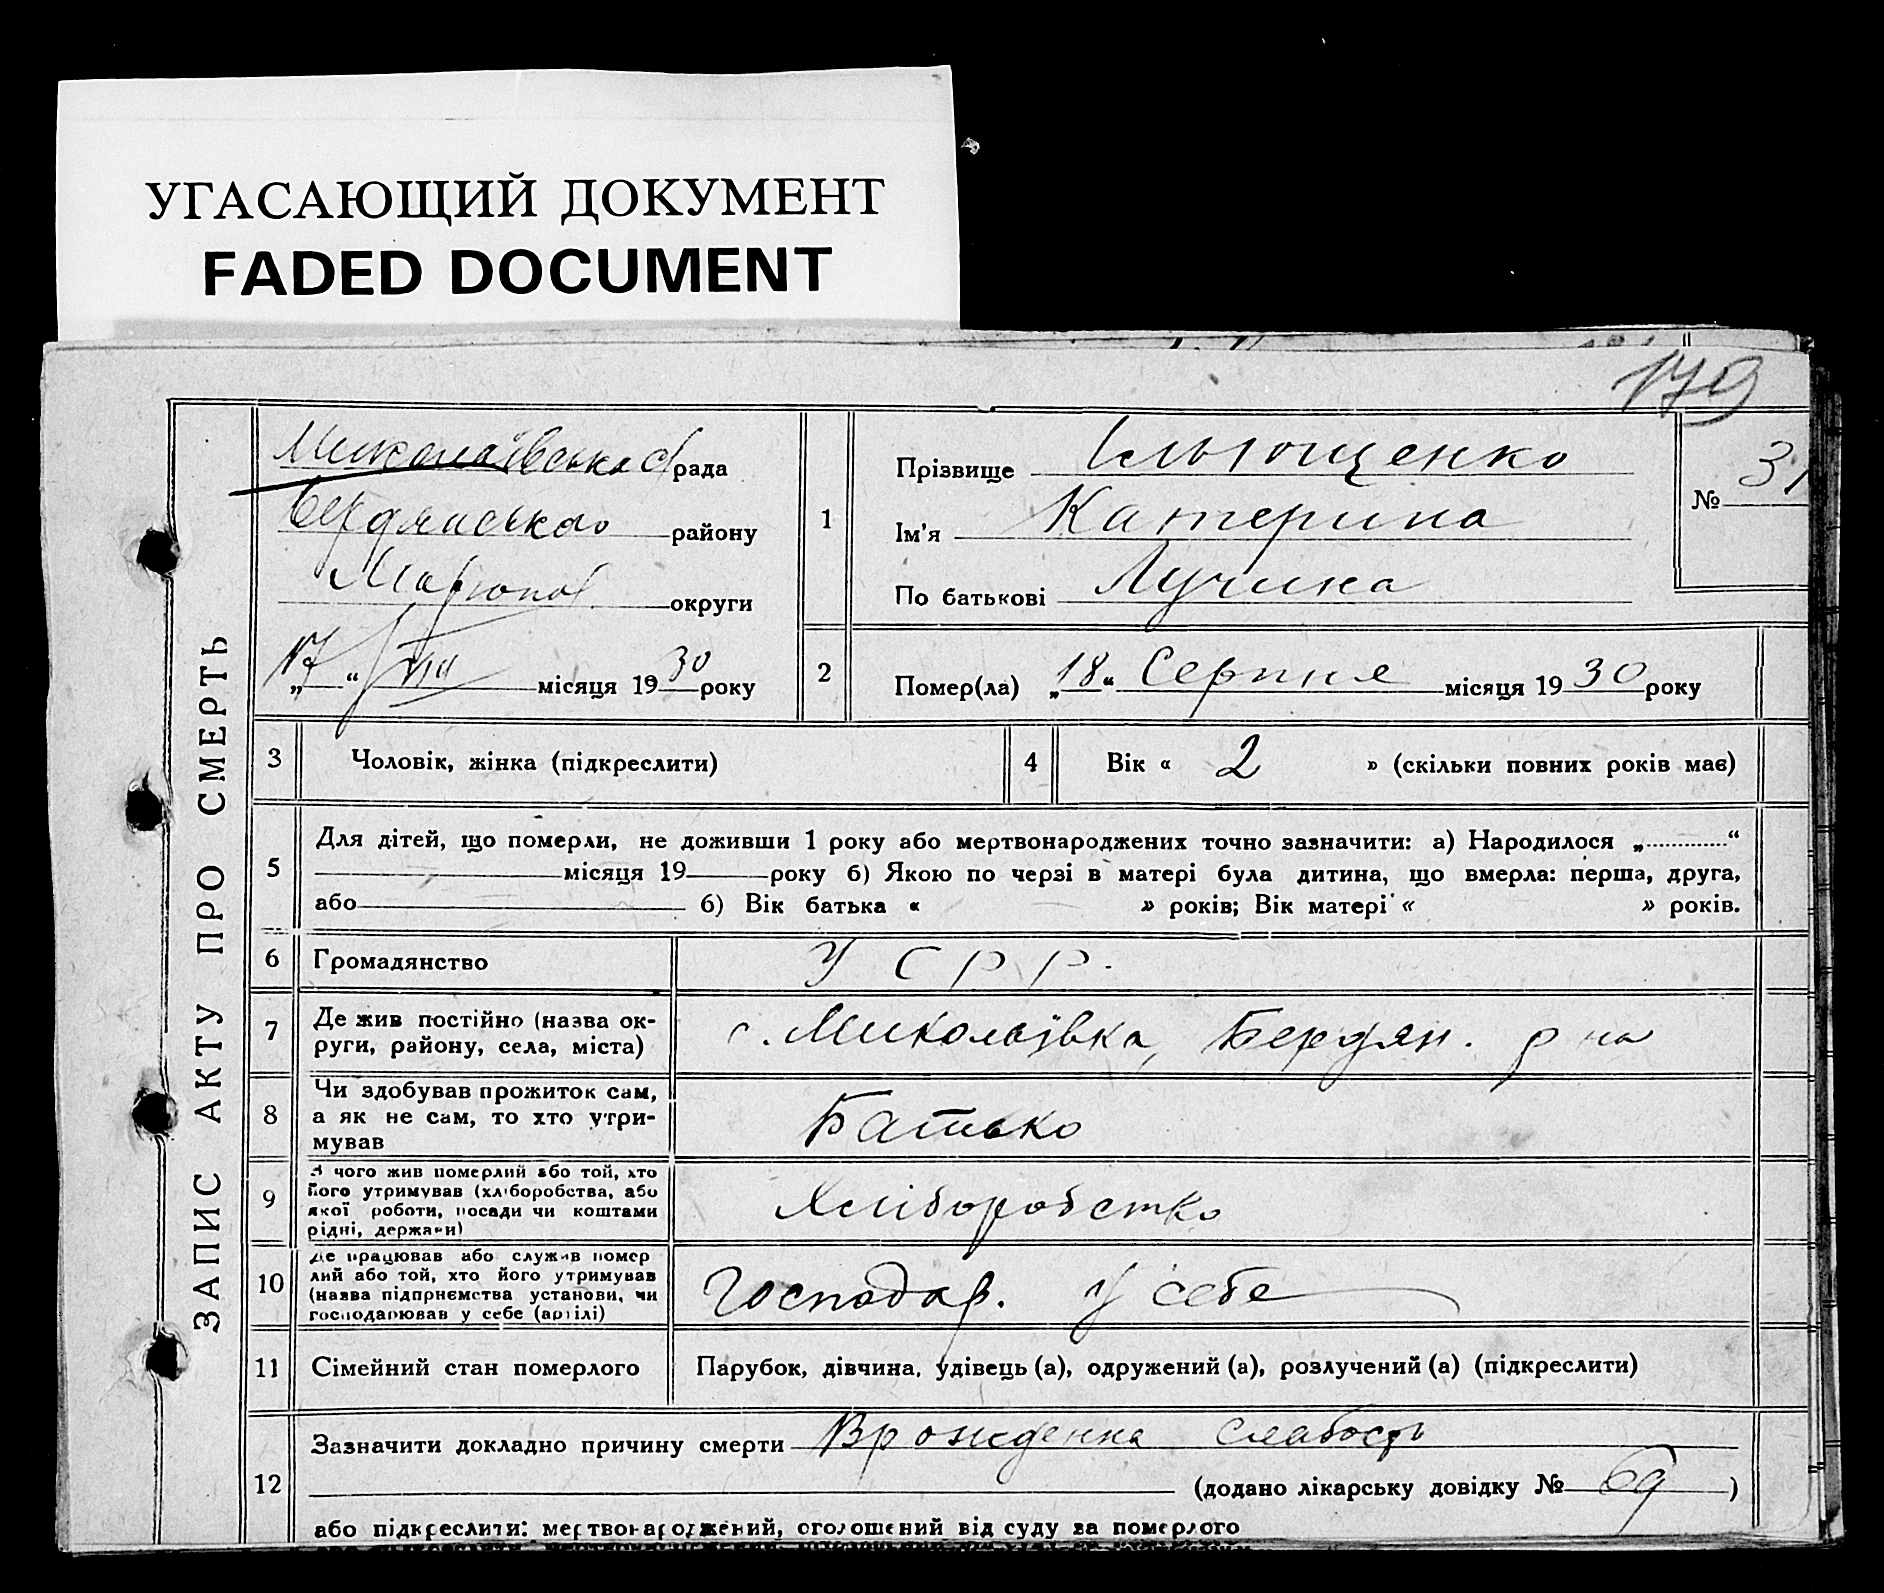 УГАСАЮЩИЙ ДОКУМЕНТ
FADED DOCUMENT
179
ЗАПИС АКТУ ПРО СМЕРТЬ
Миколаївська с/рада
Бердянськао району
Маріюпол округи
„17“ VIII місяця 1930 року
1
Прізвище Ільющенко
Ім'я Катерина
По батькові
№ 31
2
Помер(ла) „18“ Серпня місяця 1930 року
3 Чоловік, жінка (підкреслити)
4 Вік « 2 » (скільки повних років має)
5
Для дітей, що померли, не доживши 1 року або мертвонароджених точно зазначити: а) Народилося „ “
місяця 19 року б) Якою по черзі в матері була дитина, що вмерла: перша, друга,
або б) Вік батька « » років; Вік матері « » років.
6 Громадянство УСРР.
7
Де жив постійно (назва ок-
руги, району, села, міста)
с. Миколаївка, Бердян. р на
8
Чи здобував прожиток сам,
а як не сам, то хто утри-
мував
Батько
9
З чого жив померлий або той, хто
його утримував (хліборобства, або
якої роботи, посади чи коштами
рідні, держави)
Хліборобстко
10
Де працював або служив помер
лий або той, хто його утримував
(назва підприємства установи, чи
господарював у себе (артілі)
Господар. у себе
11 Сімейний стан померлого
Парубок, дівчина, удівець (а), одружений (а), розлучений (а) (підкреслити)
12
Зазначити докладно причину смерти Врожденна слабость
(додано лікарську довідку № 69 )
або підкреслити: мертвонароджений, оголошений від суду за померлого